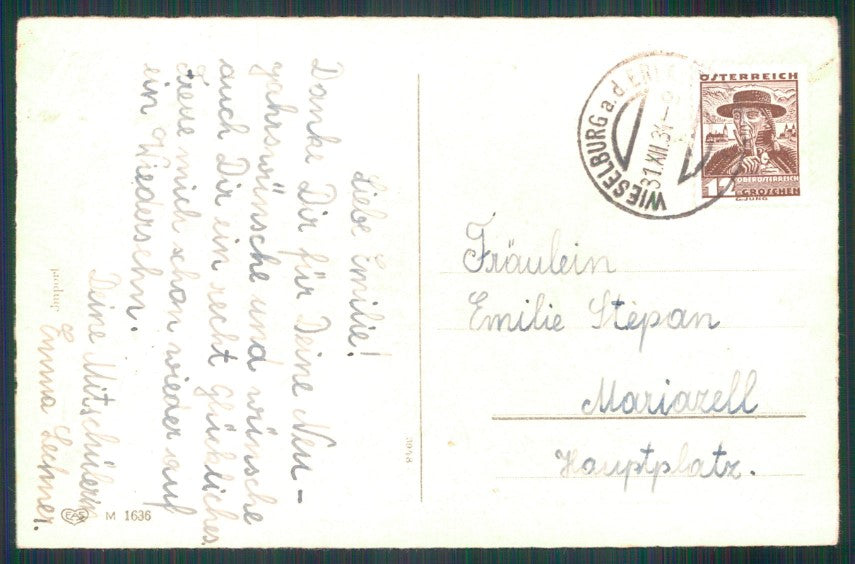 Liebe Emilie!
Danke Dir für Deine Neu-
jahrswünsche und wünsche
auch Dir ein recht glückliches.
Freue mich schon wieder auf
ein Wiedersehn.
Deine Mitschülerin
Emma Lechner.
WIESELBURG a. d. ERL
31.XII.34
ÖSTERREICH
OBERÖSTERREICH
12 GROSCHEN
G. JUNG
Fräulein
Emilie Stépan
Mariazell
Hauptplatz.
3048
EAS M 1636